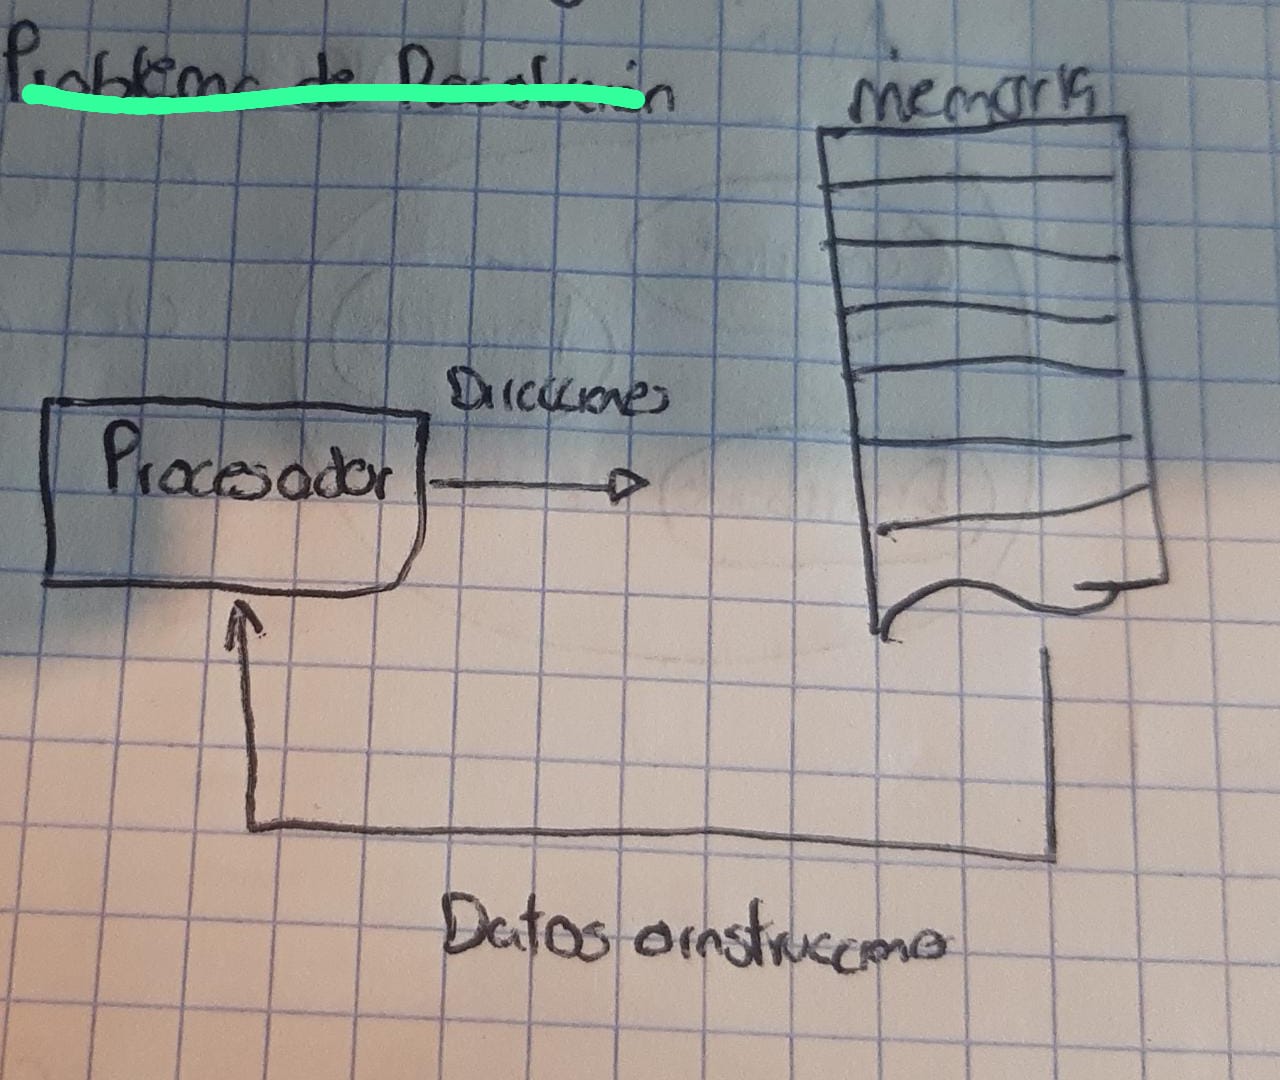 Problema de
memoria
Direcciones
Procesador
Datos o instrucciono